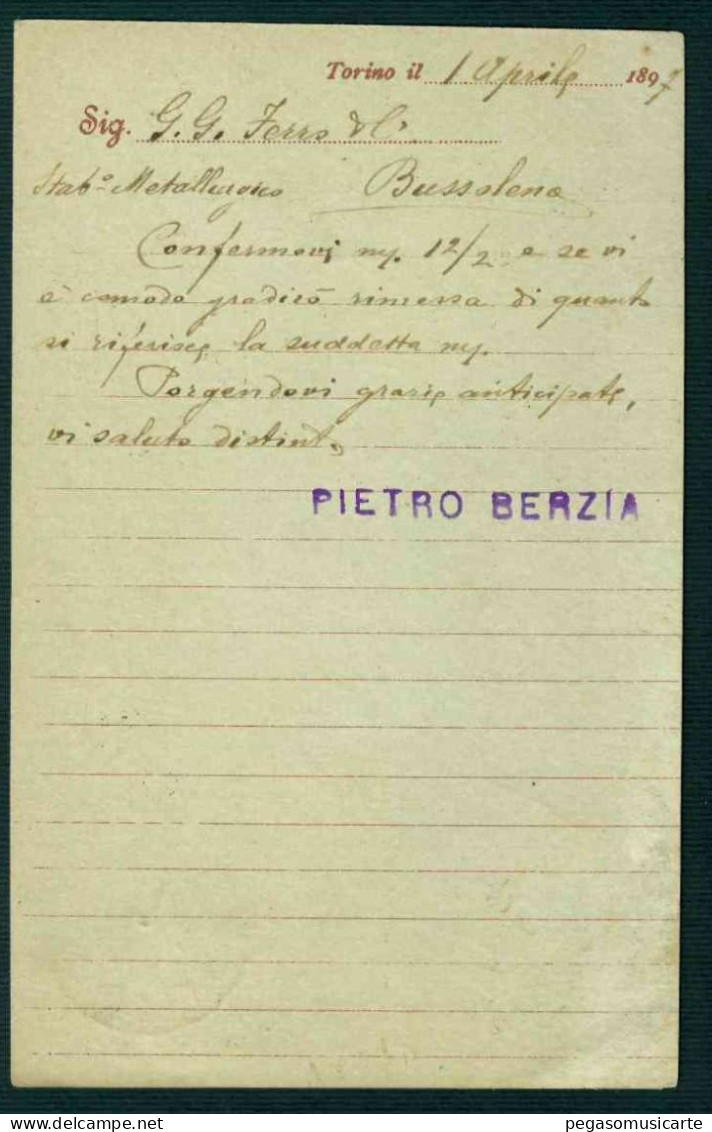 Torino il 1 Aprile 1897
Sig. G. G. Ferro & Cº
Stabº Metallurgico Bussoleno
Confermovi my. 12/2 e se vi
è comodo gradirò rimessa di quanto
si riferisce la suddetta my.
Porgendovi grazie anticipate,
vi saluto distint.
PIETRO BERZÍA
pegasomusicarte